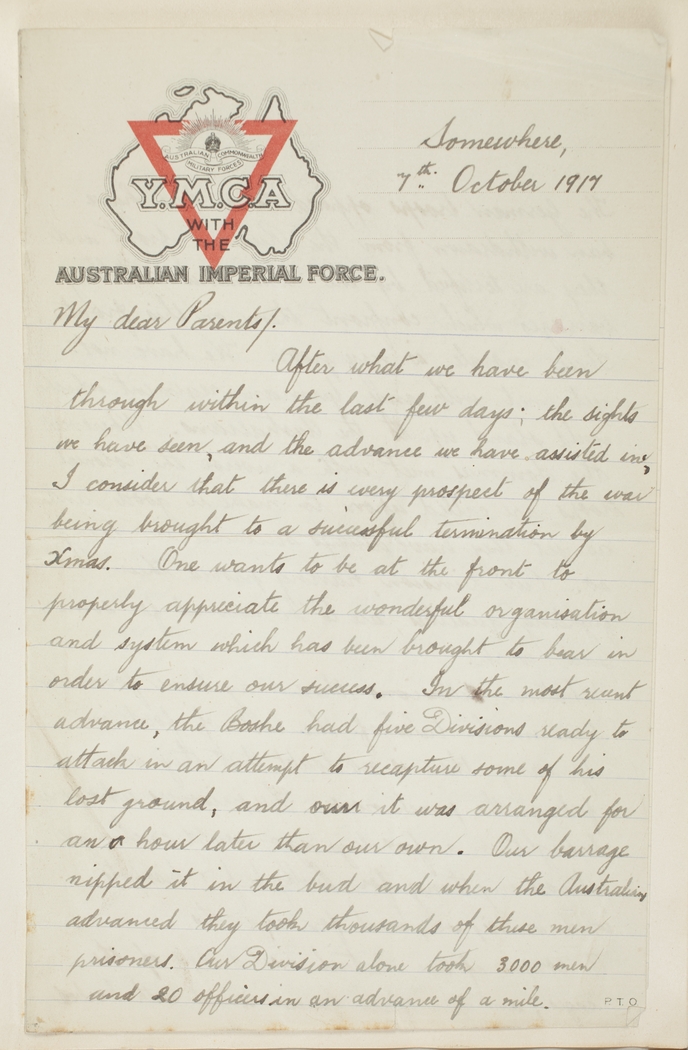 AUSTRALIAN COMMONWEALTH
MILITARY FORCES
Y.M.C.A
WITH
THE
AUSTRALIAN IMPERIAL FORCE.
Somewhere,
7th. October 1917
My dear Parents/.
After what we have been
through within the last few days; the sights
we have seen, and the advance we have assisted in,
I consider that there is every prospect of the war
being brought to a successful termination by
Xmas. One wants to be at the front to
properly appreciate the wonderful organisation
and system which has been brought to bear in
order to ensure our success. In the most recent
advance, the Boshe had five Divisions ready to
attack in an attempt to recapture some of his
lost ground, and it was arranged for
an hour later than our own. Our barrage
nipped it in the bud and when the Australians
advanced they took thousands of these men
prisoners. Our Division alone took 3000 men
and 20 officers in an advance of a mile.
P.T.O